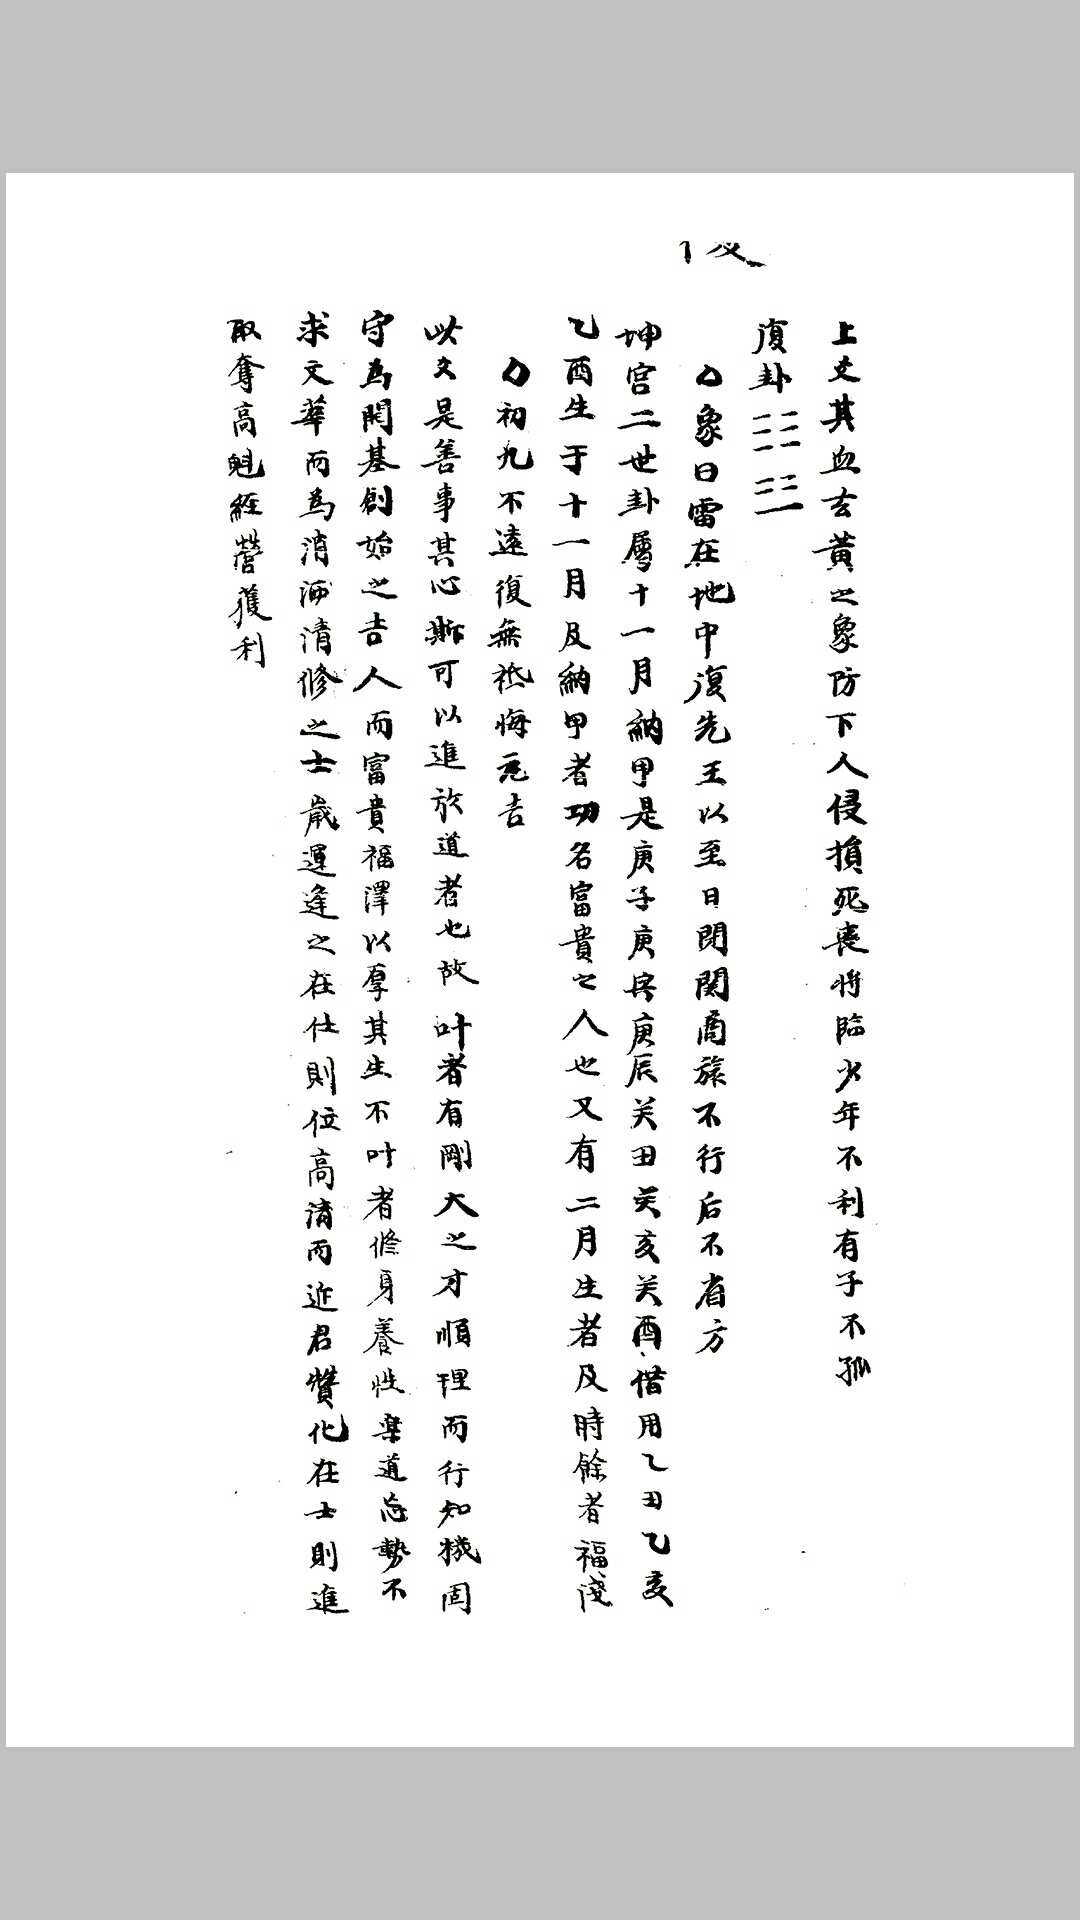 上爻其血玄黃之象防下人侵損死喪將臨少年不利有子不孤
復卦
象曰雷在地中復先王以至日閉關商旅不行后不省方
坤宮二世卦屬十一月納甲是庚子庚寅庚辰关丑关亥关酉借用乙丑乙亥
乙酉生于十一月及納甲者功名富貴之人也又有二月生者及時餘者福淺
初九不遠復無祗悔元吉
此爻是善事其心斯可以進於道者也故叶者有剛大之才順理而行知機固
守為開基創始之吉人而富貴福澤以厚其生不叶者修身養性楽道忘勢不
求文華而為消洒清修之士歲運逢之在仕則位高清而近君贊化在士則進
取奪高魁經營獲利